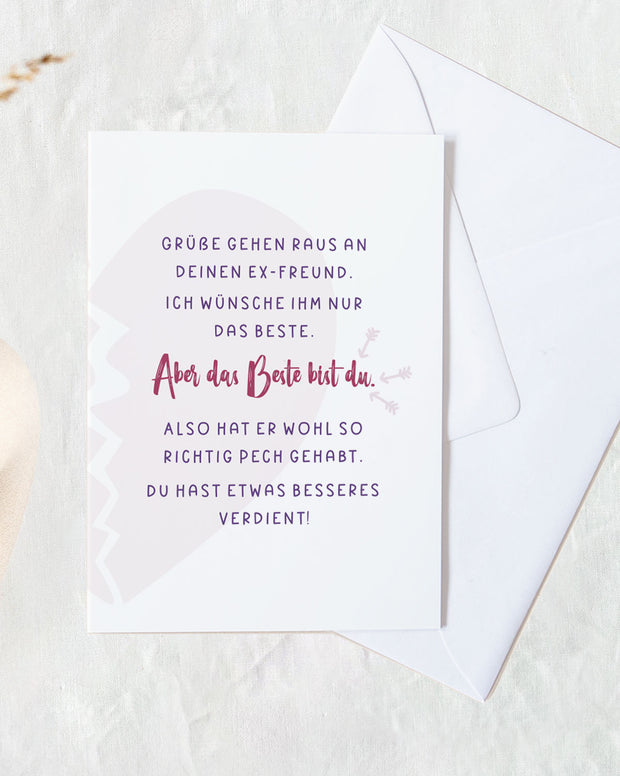 GRÜẞE GEHEN RAUS AN
DEINEN EX-FREUND.
ICH WÜNSCHE IHM NUR
DAS BESTE.
Aber das Beste bist du.
ALSO HAT ER WOHL SO
RICHTIG PECH GEHABT.
DU HAST ETWAS BESSERES
VERDIENT!